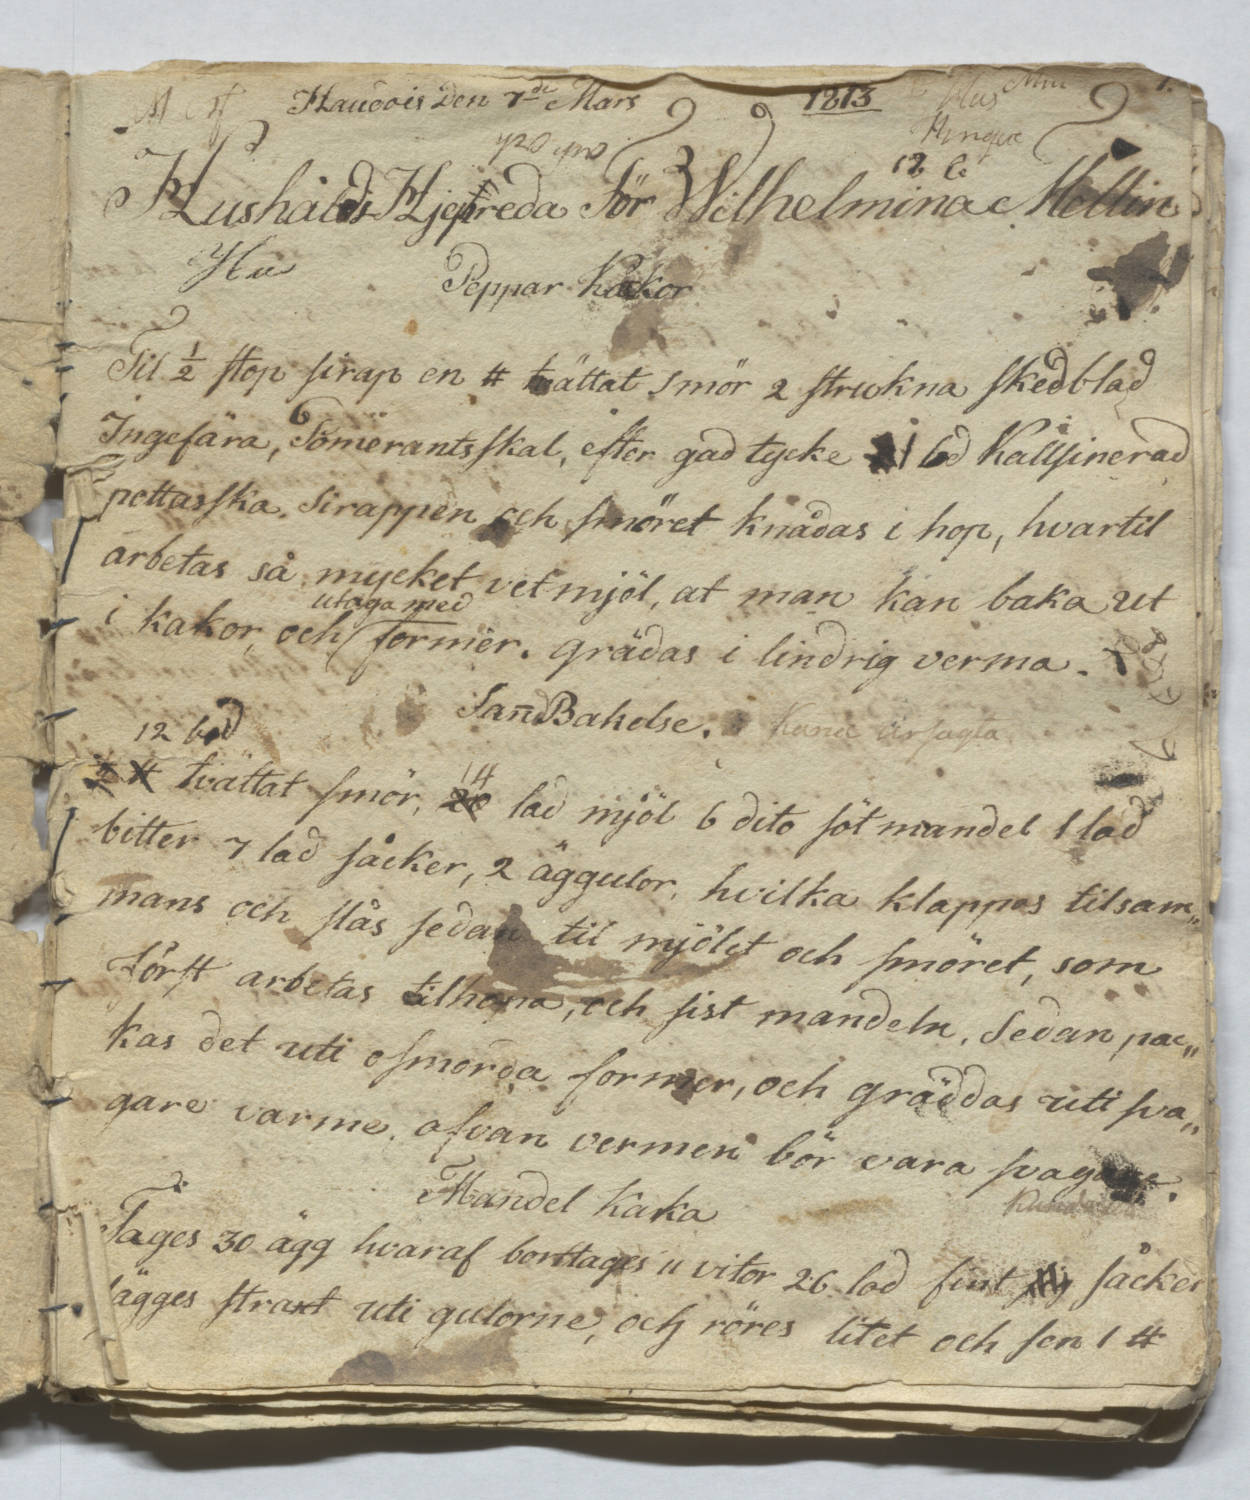 Den 7de Mars 1813 1.
Hushålds Hjelpreda För Wilhelmina Mellin
Hu
Peppar Kackor
Til ½ stop sirap en ⌗ tvättat smör 2 strukna skedblad
Ingefära, Pomerantsskal, efter godtycke 1 lod Kalsinerad
pottasska. Sirappen och smöret knådas i hop, hvartil
arbetas så mycket vetmjöl, at man kan baka ut
utaga med
i kakor och former. grädas i lindrig verma.
Sand Bakelse.
12 lod
½ ⌗ tvättat smör, 14 lod mjöl 6 dito söt mandel 1 lod
bitter 7 lod såcker, 2 äggulor, hvilka klappas tilsam„
mans och slås sedan til mjölet och smöret, som
först arbetas tilhopa, och sist mandeln, Sedan pac„
kas det uti osmorda former, och gräddas uti sva„
gare varme. ofvan vermen bör vara svagare.
Mandel Kaka
Tages 30 ägg hvaraf borttages 11 vitor 26 lod fint såcker
lägges straxt uti gulorne, och röres litet och sen 1 ⌗